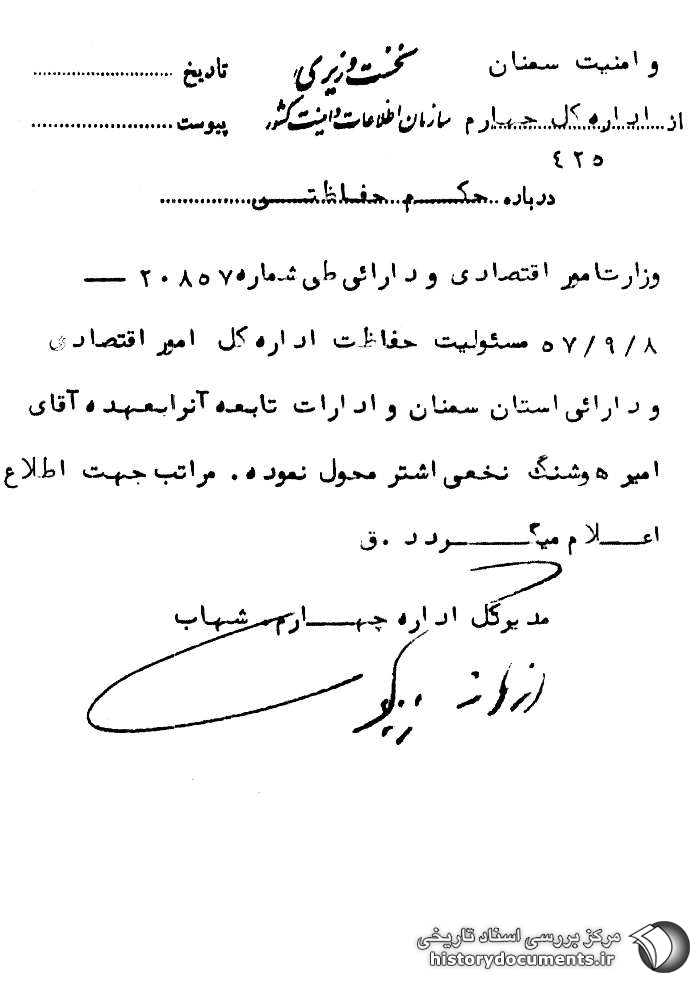 و امنیت سمنان نخست وزیری تاریخ
از اداره کل چهارم سازمان اطلاعات و امنیت کشور پیوست
٤٢٥
درباره حکم حفاظتی
وزارت امور اقتصادی و دارائی طی شماره ٢٠٨٥٧ —
٥٧/٩/٨ مسئولیت حفاظت اداره کل امور اقتصادی
و دارائی استان سمنان و ادارات تابعه آنرا بعهده آقای
امیر هوشنگ نخعی اشتر محول نموده. مراتب جهت اطلاع
اعلام میگردد .ق
مدیر کل اداره چهارم. شهاب
از طرف
مرکز بررسی اسناد تاریخی
historydocuments.ir